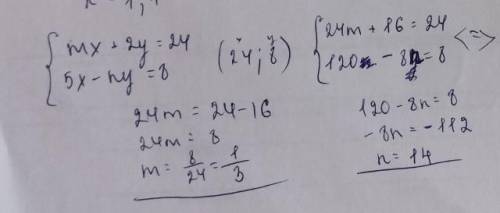 { mx + 2y = 24
5x - ny = 8
(24; 8)
x y
{ 24m + 16 = 24
120 - 8n = 8 <=>
24m = 24 - 16
24m = 8
m = 8/24 = 1/3
120 - 8n = 8
- 8n = - 112
n = 14